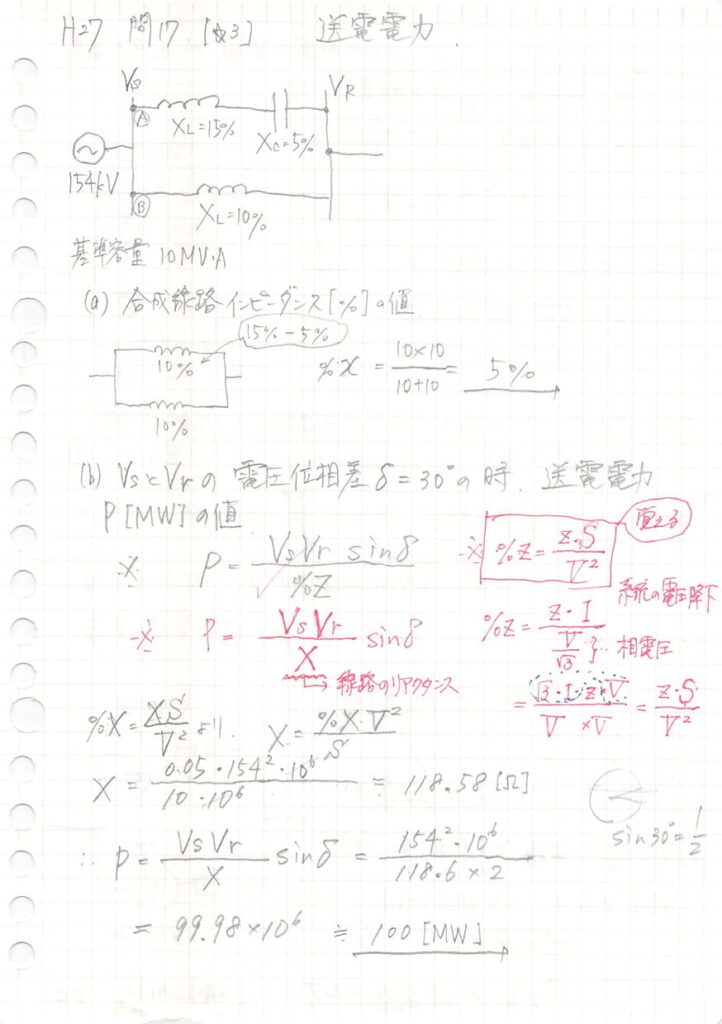 H27 問17 [☆3] 送電電力
Vs
VR
Ⓐ
XL=15%
Xc=5%
154kV
Ⓑ
XL=10%
基準容量 10MV·A
(a) 合成線路インピーダンス[%]の値
15%-5%
10%
10%
%x = 10×10/10+10 = 5%
(b) VsとVrの電圧位相差δ=30°の時. 送電電力
P[MW]の値
※ P = VsVr sinδ/%Z
※ %Z = Z·S/V²
覚える
※ P = VsVr/X sinδ
線路のリアクタンス
系統の電圧降下
%Z = Z·I/(V/√3) } … 相電圧
= √3·I·Z×V/V×V = Z·S/V²
%X = XS/V² より. X = %X·V²/S
X = 0.05·154²·10⁶/10·10⁶ = 118.58 [Ω]
sin30°=1/2
∴ P = VsVr/X sinδ = 154²·10⁶/118.6×2
= 99.98×10⁶ ≒ 100 [MW]